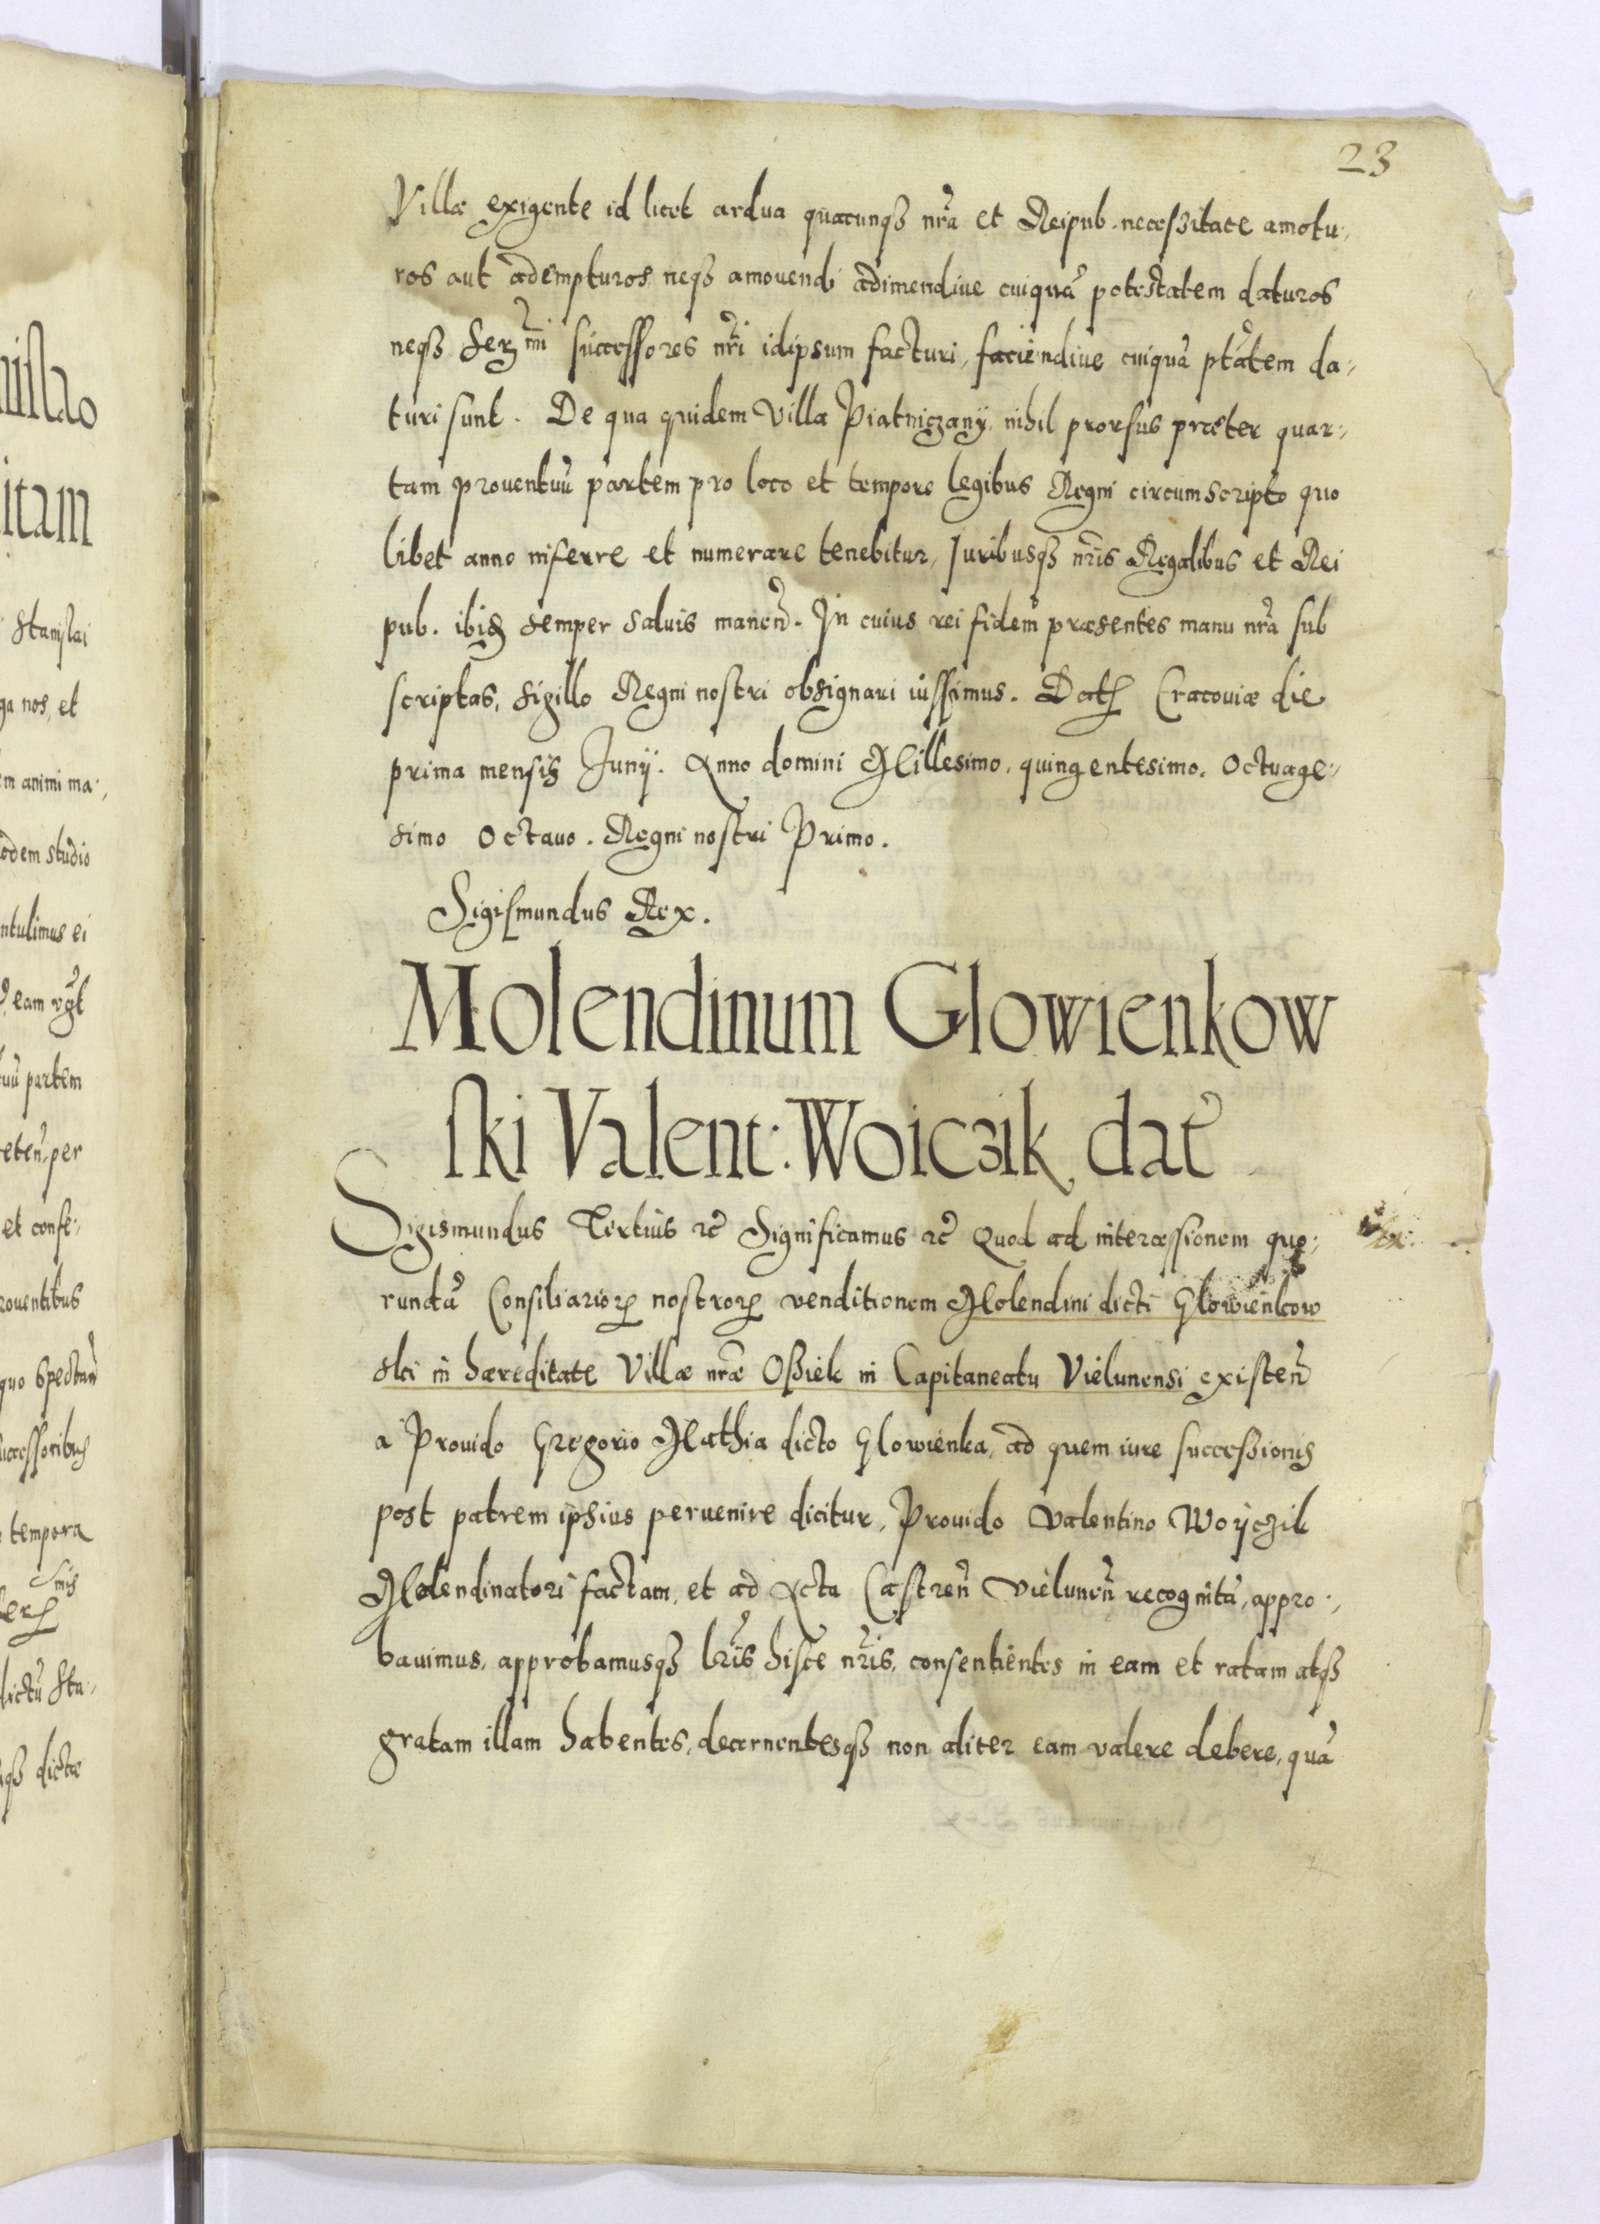 23
Villæ exigente id licet ardua quacunqȝ nr̃a et Reipub. necessitate amotu-
ros aut adempturos neqȝ amouendi adimendiue cuiquã potestatem daturos
neqȝ Serᵐⁱ successores nr̃i idipsum facturi, faciendiue cuiquã ptãtem da-
turi sunt. De qua quidem Villa Piatniczany, nihil prorsus præter quar-
tam prouentuũ partem pro loco et tempore legibus Regni circumscripto quo
libet anno inferre et numerare tenebitur, Juribusqȝ nr̃is Regalibus et Rei
pub. ibiɜ semper saluis maneñ. In cuius rei fidem præsentes manu nr̃a sub
scriptas, sigillo Regni nostri obsignari iussimus. Datɜ Cracouiæ die
prima mensis Junij. Anno domini Millesimo, quingentesimo. Octuage-
simo Octauo. Regni nostri Primo.
Sigismundus Rex.
Molendinum Glowienkow
ski Valent: Woiczik dat̃
Sigismundus Tertius ꝛc̃ Significamus ꝛc̃ Quod ad intercessionem quo-
rundã Consiliarioꝝ nostroꝝ venditionem Molendini dicti Glowienkow
ski in hæreditate Villæ nr̃æ Ossiek in Capitaneatu Vielunensi existeñ
a Prouido Gregorio Mathia dicto Glowienka, ad quem iure successionis
post patrem ipsius peruenire dicitur, Prouido Valentino Woyczik
Molendinatori factam, et ad Acta Castreñ Vieluneñ recognitã, appro-
bauimus, approbamusqȝ lr̃is hisce nr̃is, consentientes in eam et ratam atqȝ
gratam illam habentes, decernentesqȝ non aliter eam valere debere, quã
itam
Stanislai
ga nos, et
em animi ma-
odem studio
ntulimus ei
eam
uũ partem
eteñ per
et confe-
rouentibus
quo
uccessoribus
tempora
dictũ Sta-
qȝ dictæ